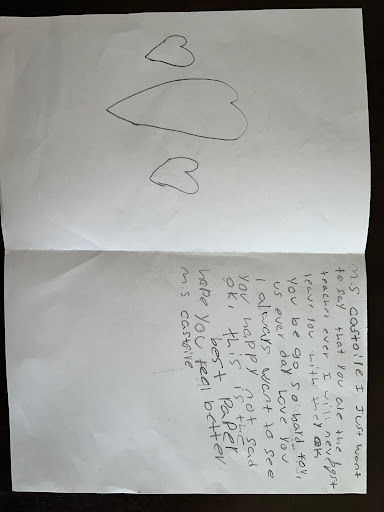 M.s castoire I Just want
to say that you are the best
teacher ever I will never
leave you with they ok
you be go so hard for
us ever day Love you
I always want to see
you happy not sad
ok, this is the
best paper
hope you feel better
M.s castoire